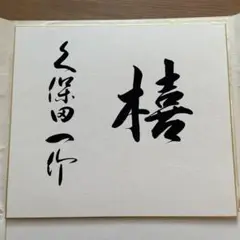 橲
久保田一竹